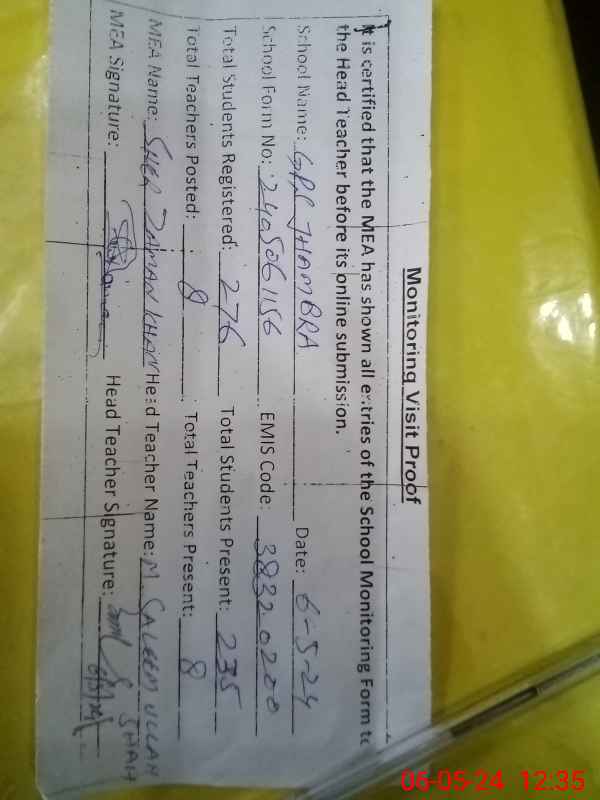 Monitoring Visit Proof
It is certified that the MEA has shown all entries of the School Monitoring Form to
the Head Teacher before its online submission.
School Name: GPS JHAMBRA Date: 6-5-24
School Form No: 2405061156 EMIS Code: 38320200
Total Students Registered: 276 Total Students Present: 235
Total Teachers Posted: 8 Total Teachers Present: 8
MEA Name: SHER ZAMAN KHAN Head Teacher Name: M. SALEEM ULLAH SHAH
MEA Signature: Head Teacher Signature:
06-05-24 12:35